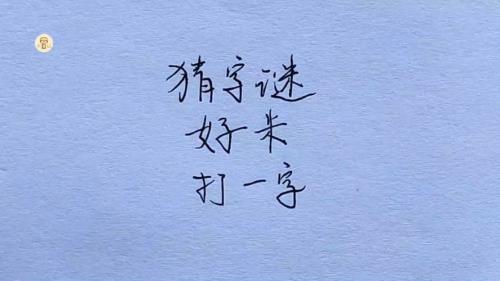 猜字谜
好米
打一字